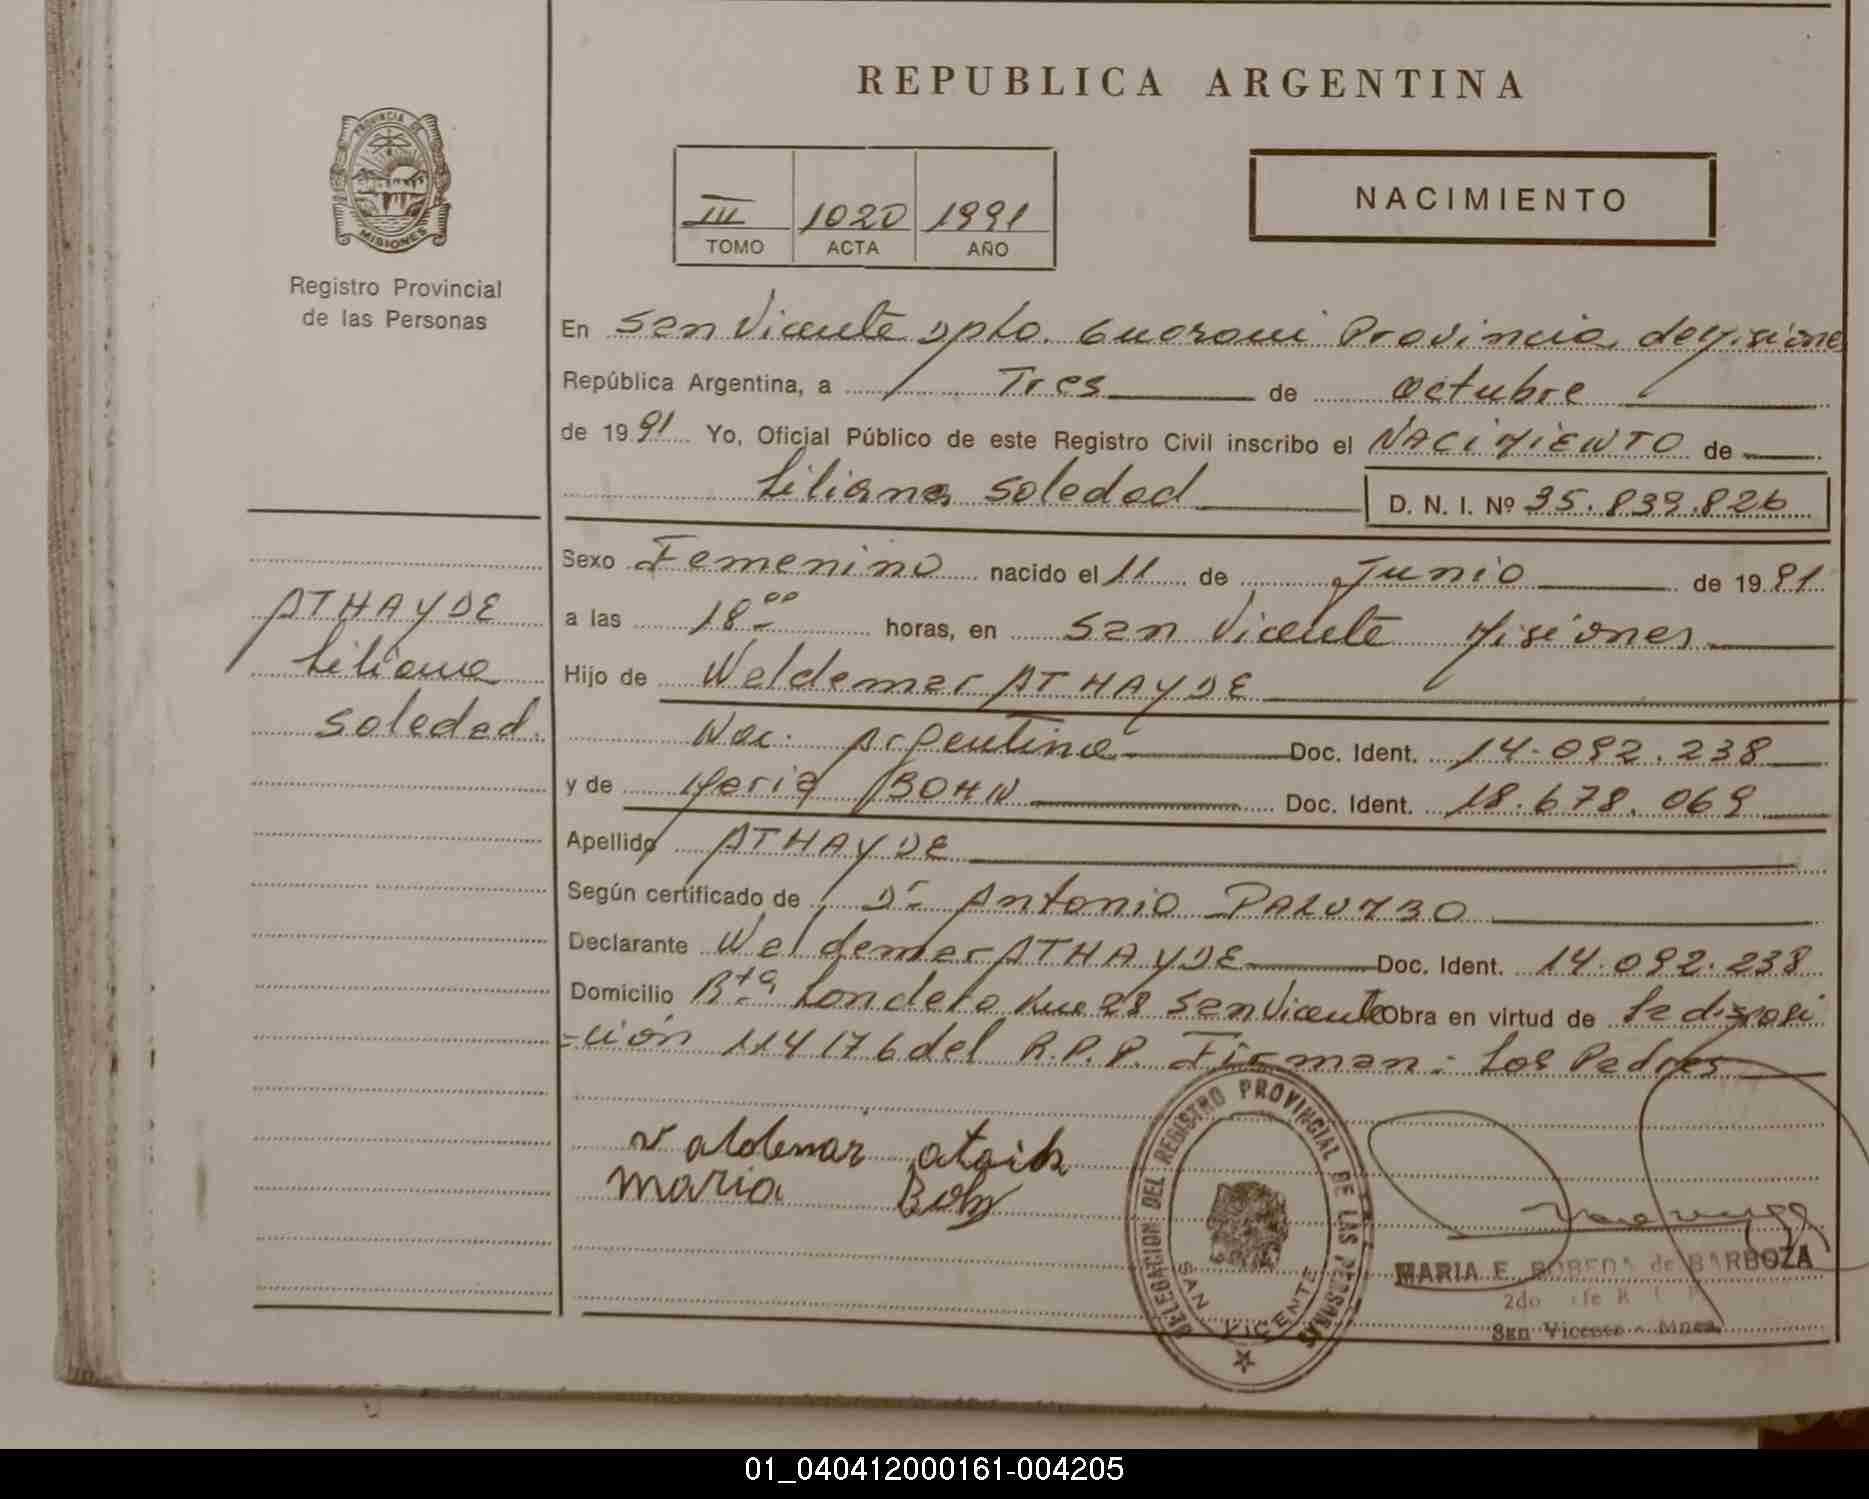 REPUBLICA ARGENTINA
PROVINCIA DE
MISIONES
Registro Provincial
de las Personas
III 1020 1991
TOMO ACTA AÑO
NACIMIENTO
En San Vicente Dpto. Guarani Provincia de Misiones
República Argentina, a Tres de Octubre
de 1991 Yo, Oficial Público de este Registro Civil inscribo el NACIMIENTO de
Liliana Soledad D. N. I. Nº 35.839.826
ATHAYDE
Liliana
Soledad.
Sexo Femenino nacido el 11 de Junio de 1991
a las 18 00 horas, en San Vicente Misiones
Hijo de Waldemar ATHAYDE
Nac. Argentina Doc. Ident. 14.092.238
y de Maria BOHN Doc. Ident. 18.678.069
Apellido ATHAYDE
Según certificado de Dr Antonio PALUZZO
Declarante Waldemar ATHAYDE Doc. Ident. 14.092.238
Domicilio Rta Londero Km 28 San Vicente Obra en virtud de la disposi
=ción 114176 del R.P.P. Firman: Los Padres
Valdemar
Maria Bohn
DELEGACION DEL REGISTRO PROVINCIAL DE LAS PERSONAS
SAN VICENTE
MARIA E. de BARBOZA
2do
San Vicente - Mnes.
01_040412000161-004205